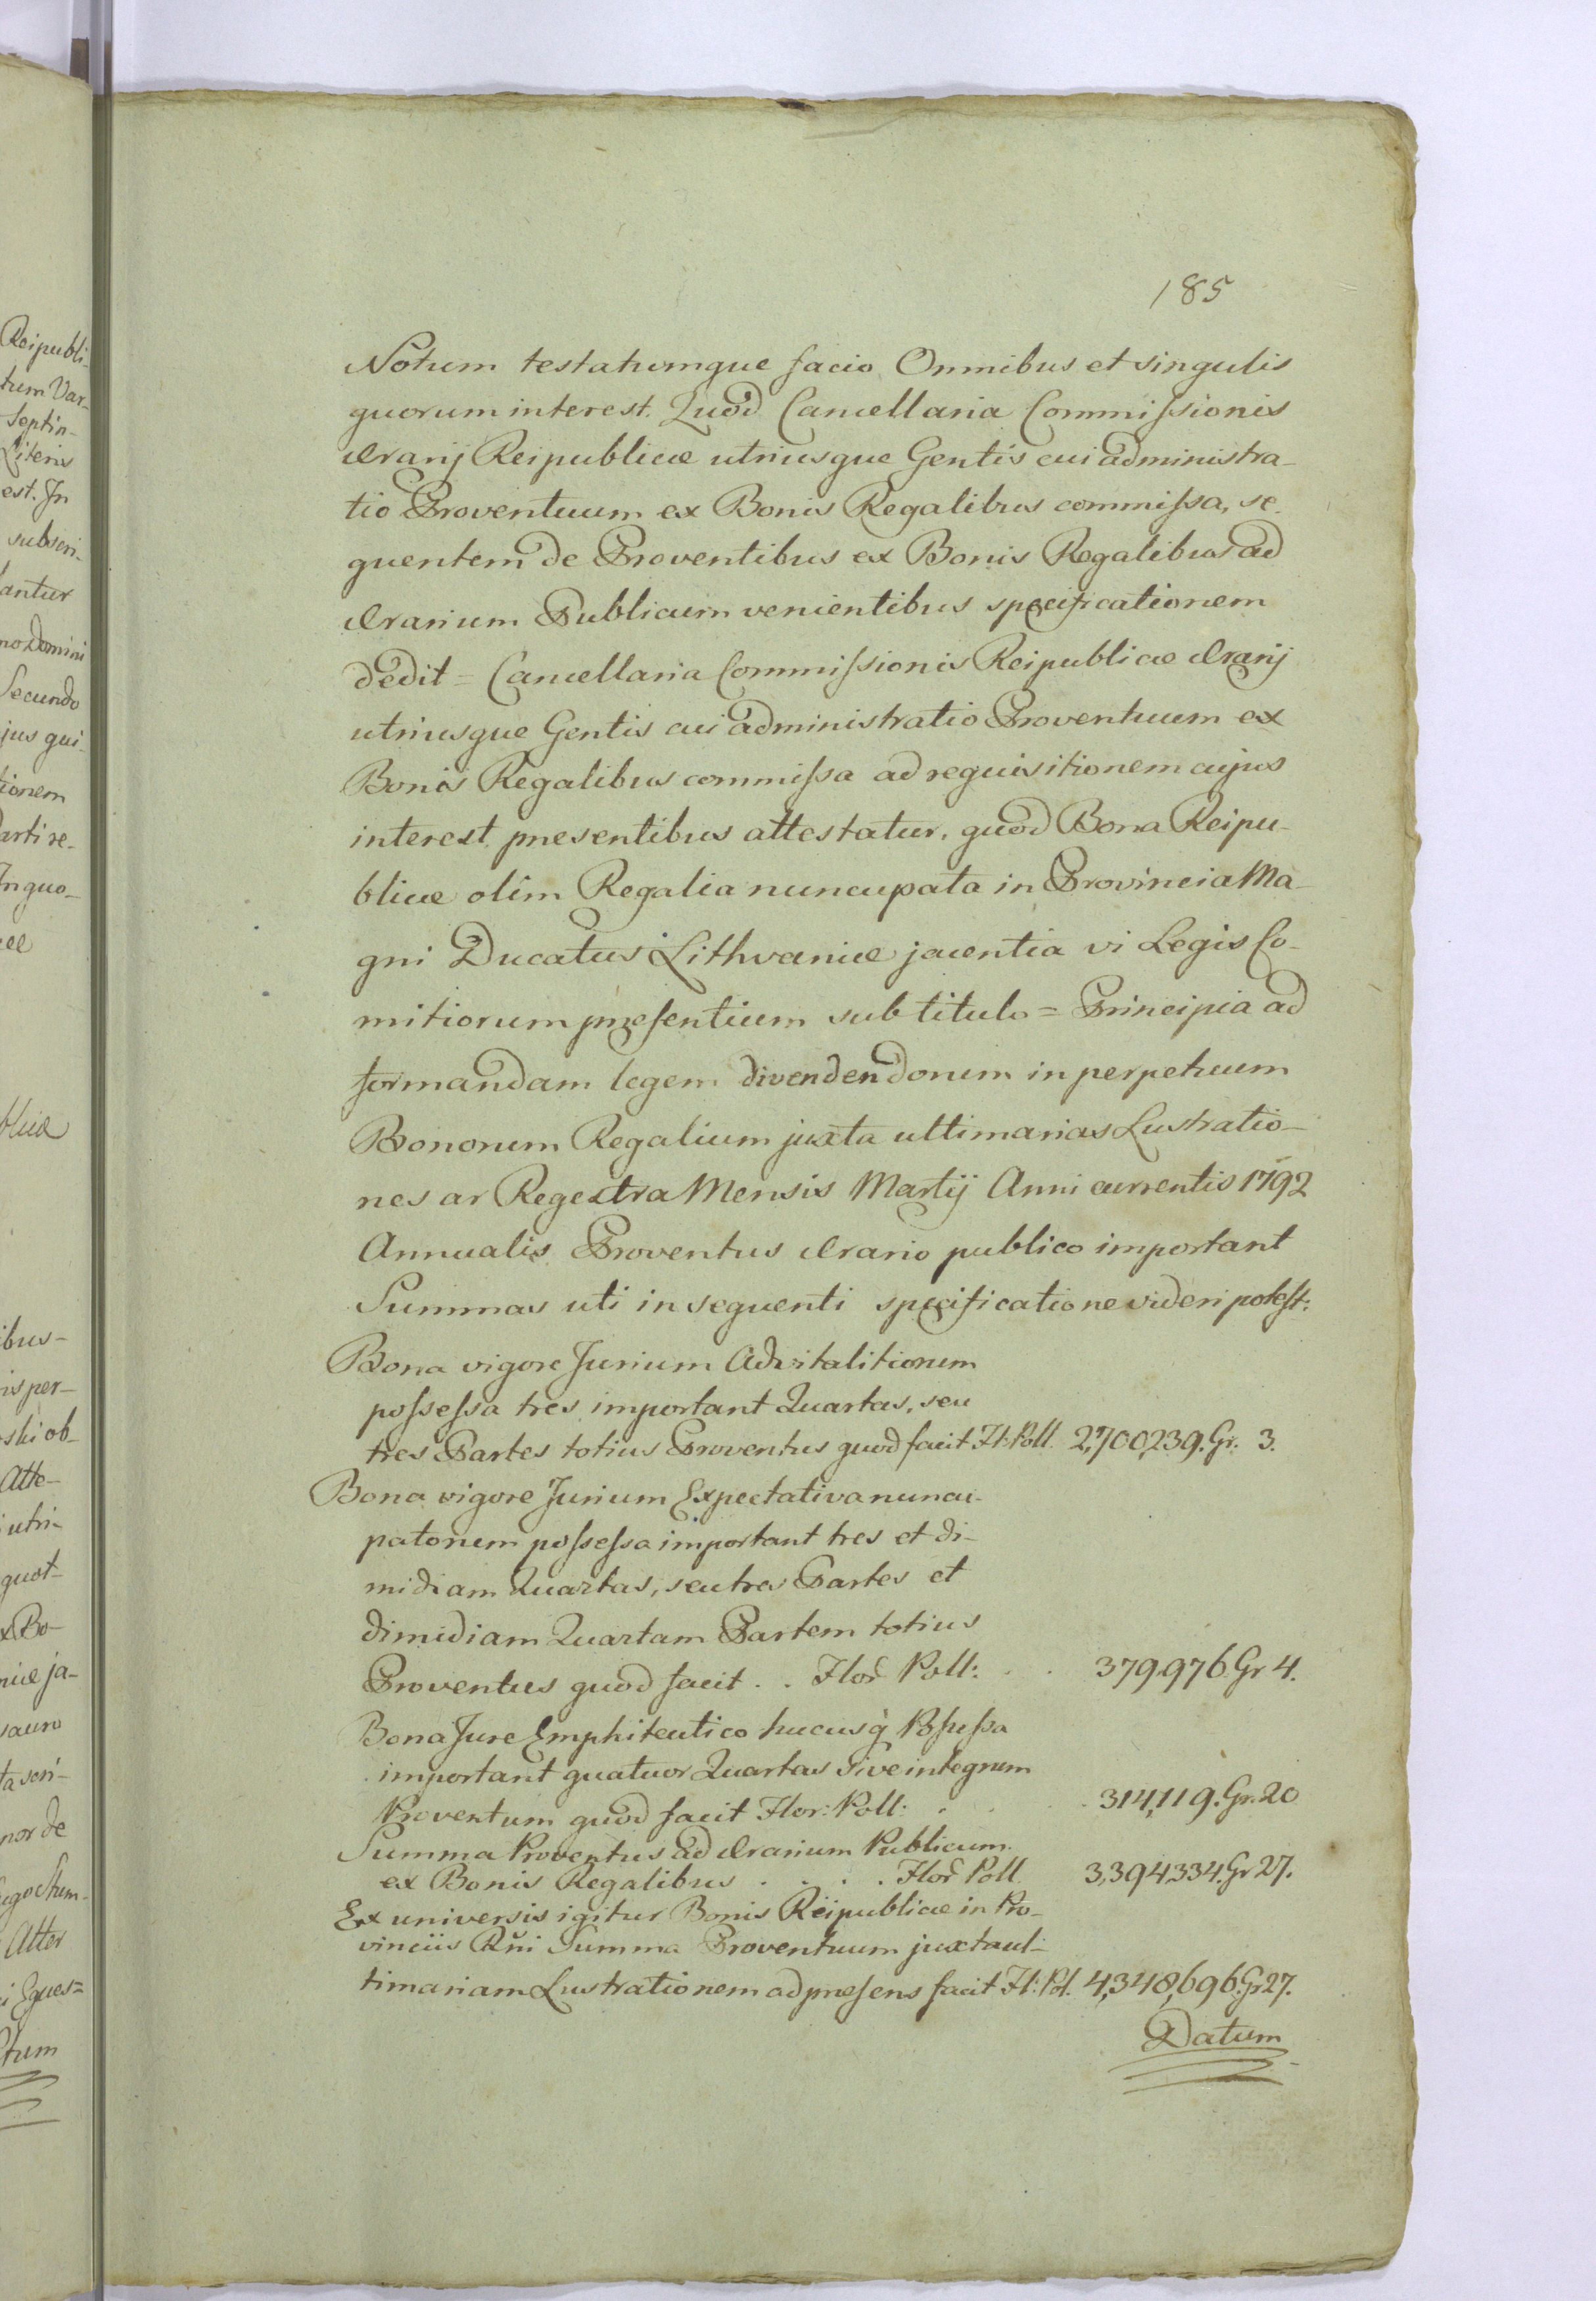 185
Notum testatumque facio Omnibus et singulis
quorum interest. Quod Cancellaria Commissionis
Ærarij Reipublicæ utriusque Gentis cui administra-
tio Proventuum ex Bonis Regalibus commissa, se-
quentem de Proventibus ex Bonis Regalibus ad
Ærarium Publicum venientibus specificationem
dedit = Cancellaria Commissionis Reipublicæ Ærarij
utriusque Gentis cui administratio Proventuum ex
Bonis Regalibus commissa ad requisitionem cujus
interest præsentibus attestatur, quod Bona Reipu-
blicæ olim Regalia nuncupata in Provincia Ma-
gni Ducatus Lithvaniæ jacentia vi Legis Co-
mitiorum præsentium sub titulo = Principia ad
formandam legem divendendorum in perpetuum
Bonorum Regalium juxta ultimarias Lustratio-
nes ac Regestra Mensis Martij Anni currentis 1792
Annualis Proventus Ærario publico important
Summas uti in sequenti specificatione videri potest:
Bona vigore Jurium Advitalitiorum
possessa tres important Quartas, seu
tres Partes totius Proventus quod facit Fl: Poll. 2,700,239. Gr: 3.
Bona vigore Jurium Expectativa nuncu-
patorum possessa important tres et di-
midiam Quartas, seu tres Partes et
dimidiam Quartam Partem totius
Proventus quod facit . . Flor Poll: . . 379,976 Gr 4.
Bona Jure Emphiteutico hucusq̃ Possessa
important quatuor Quartas sive integrum
Proventum quod facit Flor: Poll: . . . 314,119. Gr. 20
Summa Proventus ad Ærarium Publicum
ex Bonis Regalibus . . . . Flor Poll. 3,394,334. Gr 27.
Ex universis igitur Bonis Reipublicæ in Pro-
vinciis Rñi Summa Proventuum juxta ul-
timariam Lustrationem ad præsens facit Fl: Pol. 4,348,696. Gr 27.
Datum